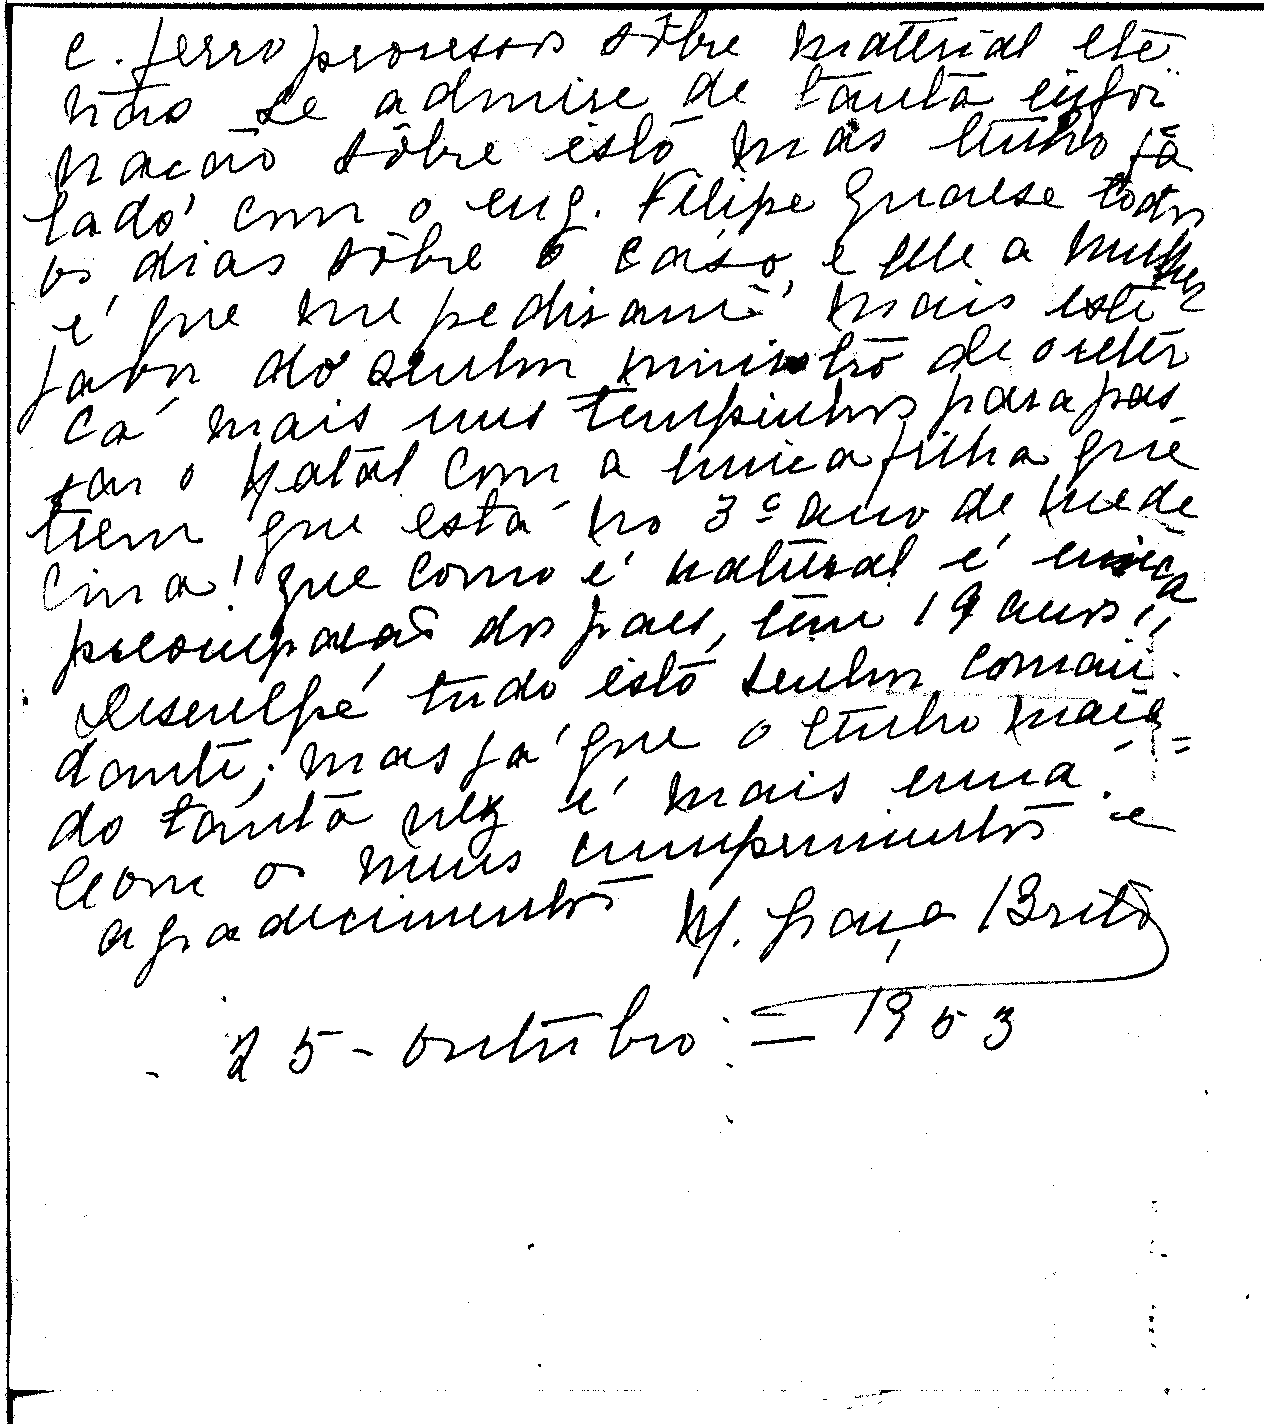 c. ferro processos sôbre material ete
não se admire de tanta enfor
mação sôbre isto mas tenho fa
lado com o eng. Filipe quaese todos
os dias sôbre o caso, e elle a mulher
é que me pedirame mais este
favor do senhor ministro de o reter
cá mais uns tempinhos para pas
sar o Natal com a unica filha que
tiem que está no 3º ano de mede
cina! que como é natural é unica
preocupacaõ dos paes, tem 19 anos!,
Desculpe tudo isto senhor coman
dante, mas já que o tenho maça
do tanta vez é mais uma.
Com os meus cumprimentos e
agradecimentos M. Graça Brito
25 - outubro = 1953